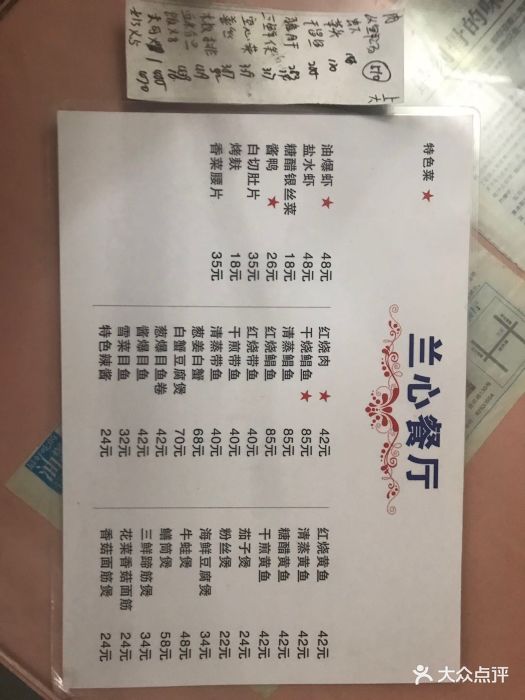 兰心餐厅
特色菜 ★
油爆虾 ★ 48元
盐水虾 48元
糖醋银丝菜 18元
酱鸭 ★ 26元
白切肚片 35元
烤麸 18元
香菜腰片 35元
红烧肉 ★ 42元
干烧鲳鱼 ★ 85元
清蒸鲳鱼 85元
红烧鲳鱼 85元
红烧带鱼 40元
干煎带鱼 40元
清蒸带鱼 40元
葱姜白蟹 68元
白蟹豆腐煲 70元
葱爆目鱼卷 42元
酱爆目鱼 42元
雪菜目鱼 32元
特色辣酱 24元
红烧黄鱼 42元
清蒸黄鱼 42元
糖醋黄鱼 42元
干煎黄鱼 42元
茄子煲 24元
粉丝煲 22元
海鲜豆腐煲 34元
牛蛙煲 48元
鳝筒煲 58元
三鲜蹄筋煲 34元
花菜香菇面筋 24元
香菇面筋煲 24元
大众点评